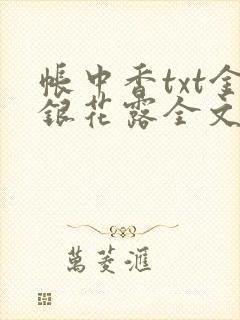 帳中香txt金
銀花露全文
萬菱滙